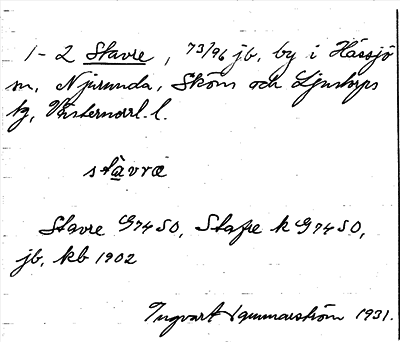 1-2 Stavre, 73/96 jb, by i Hässjö
sn, Njurunda, Sköns och Ljustorps
tg, Västernorrl. l.
stàvrɑ
Stavre G74SO, Stafre k G74SO,
jb, kb 1902
Ingvart 1931.